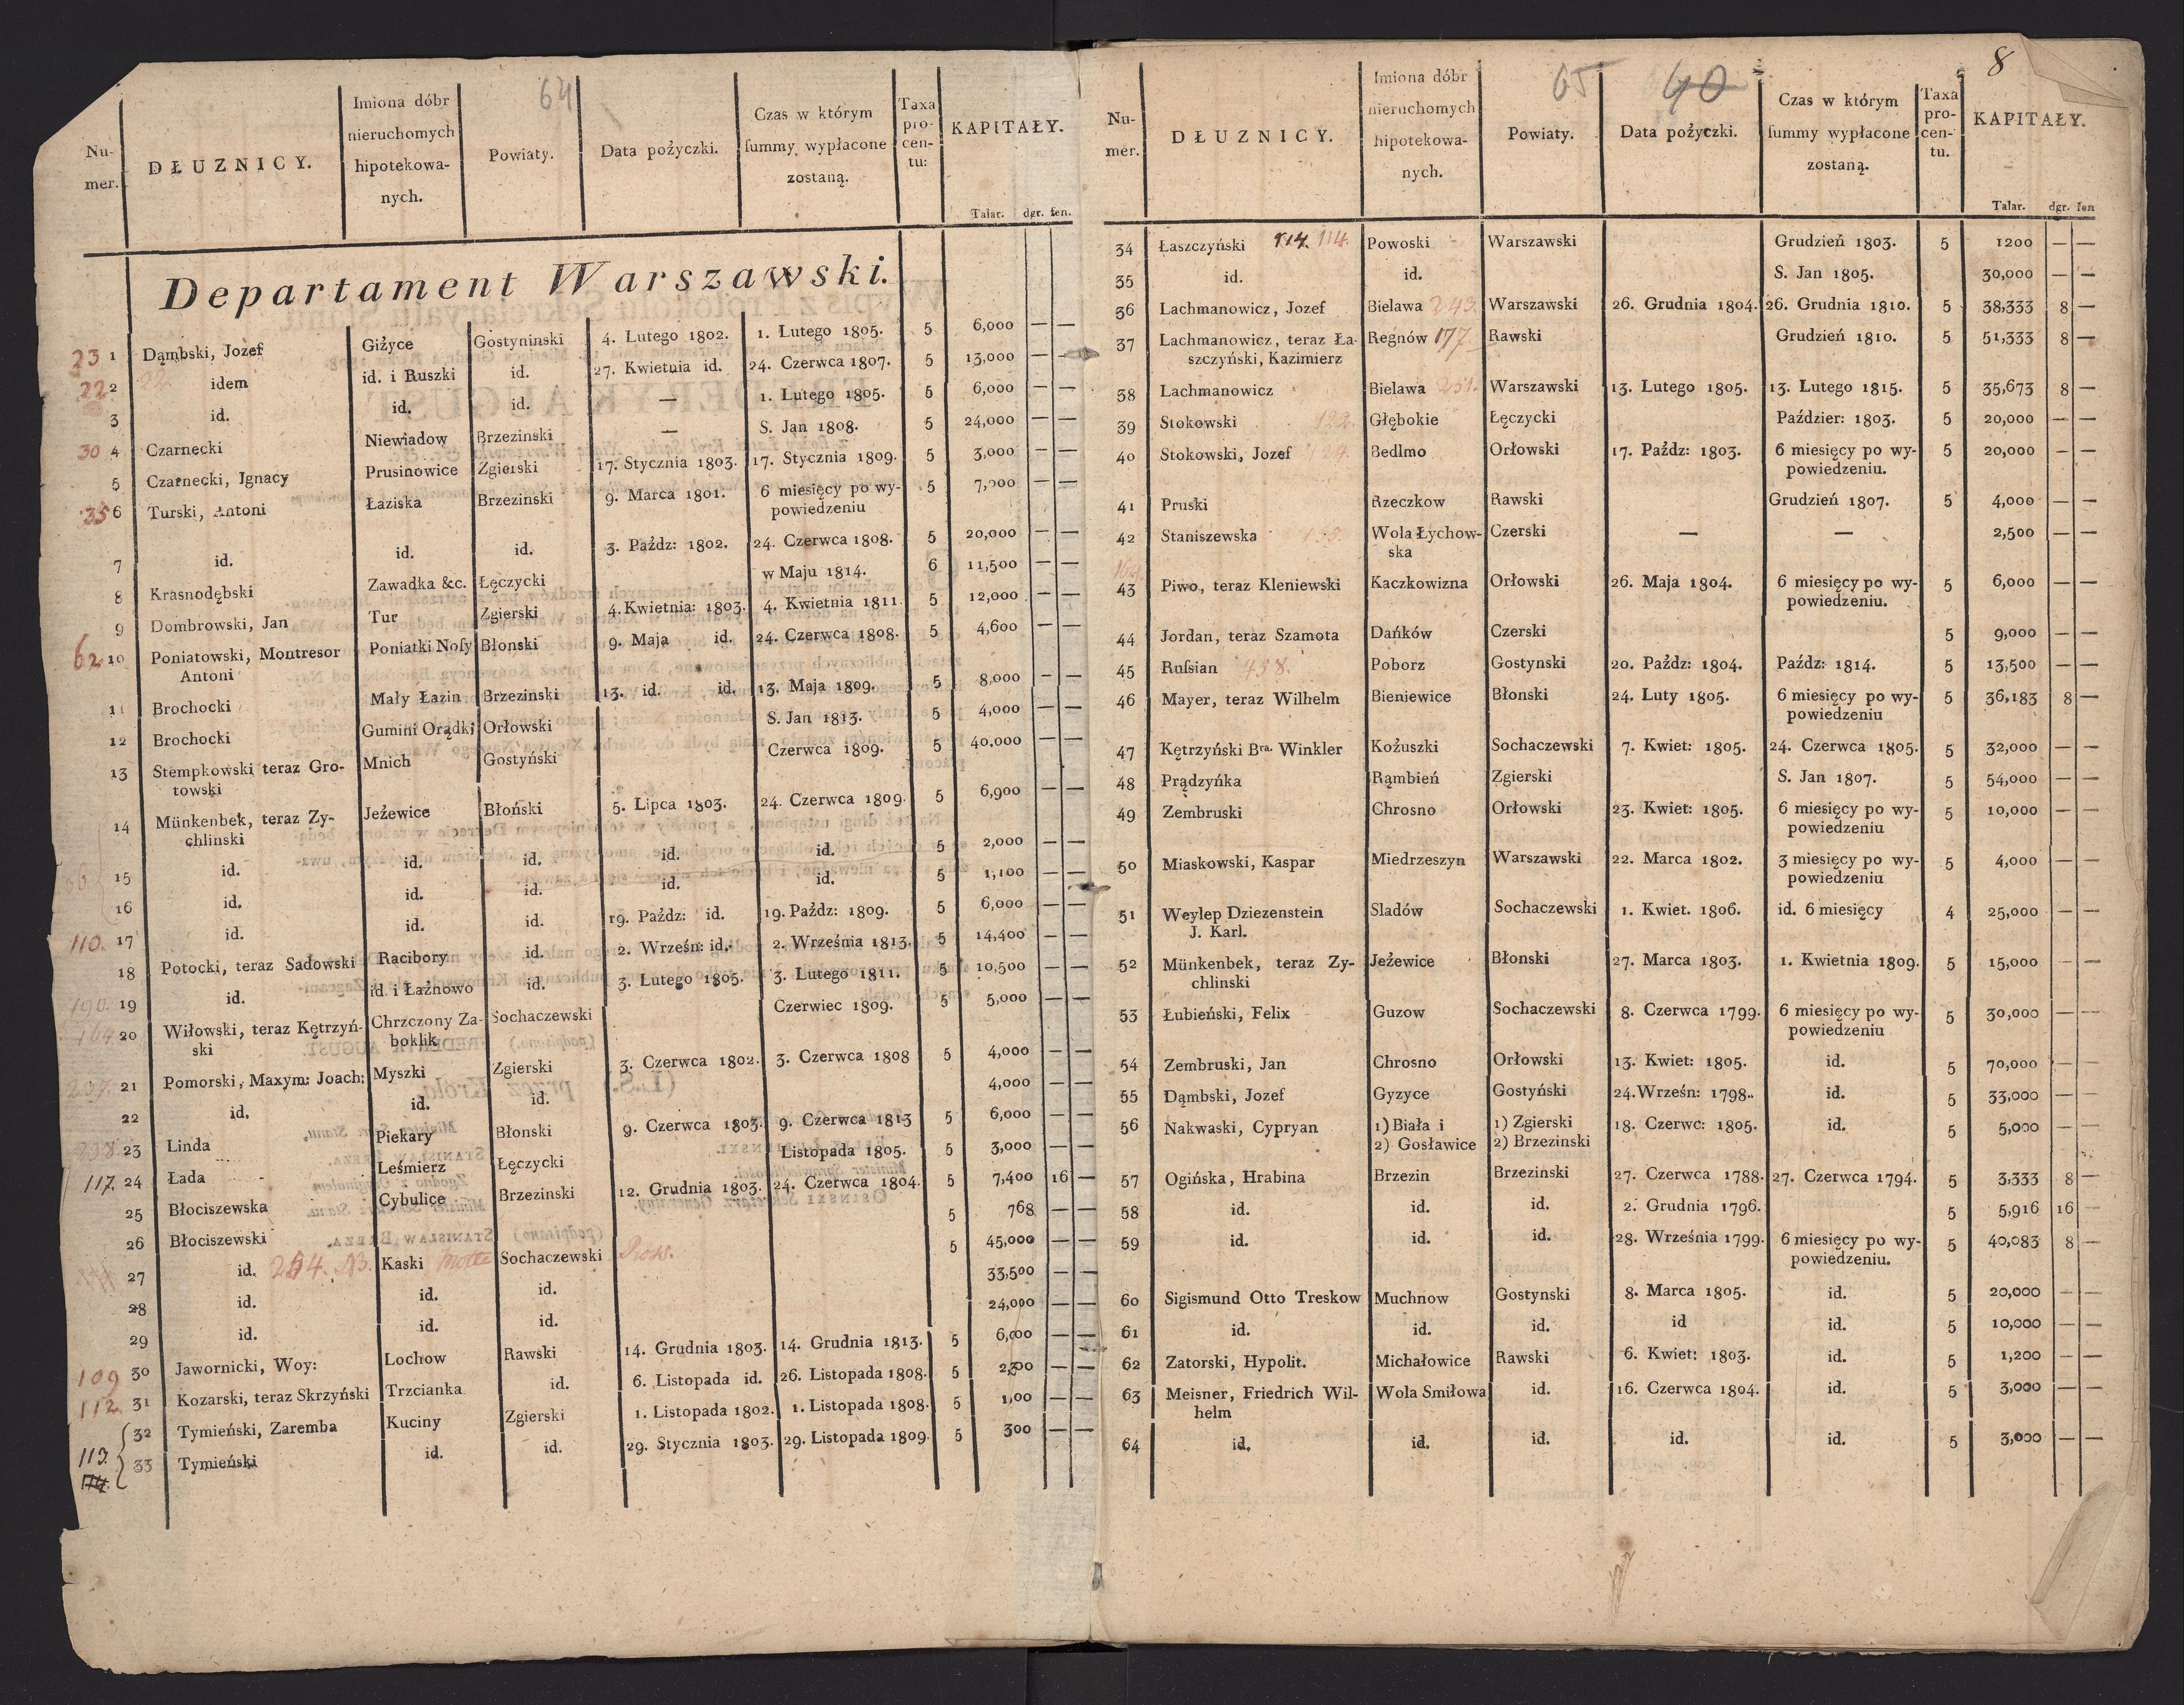 64
Nu-
mer.
DŁUZNICY.
Imiona dóbr
nieruchomych
hipotekowa-
nych.
Powiaty.
Data pożyczki.
Czas w którym
summy wypłacone
zostaną.
Taxa
pro-
cen-
tu:
KAPITAŁY.
Talar. dgr. fen.
Departament Warszawski.
23 1 Dąmbski, Jozef Giżyce Gostyninski 4. Lutego 1802. 1. Lutego 1805. 5 6,000 — —
22 2 idem id. i Ruszki id. 27. Kwietnia id. 24. Czerwca 1807. 5 13,000 — —
3 id. id. id. — 1. Lutego 1805. 5 6,000 — —
30 4 Czarnecki Niewiadow Brzezinski — S. Jan 1808. 5 24,000 — —
5 Czarnecki, Ignacy Prusinowice Zgierski 17. Stycznia 1803. 17. Stycznia 1809. 5 3,000 — —
35 6 Turski, Antoni Łaziska Brzezinski 9. Marca 1801. 6 miesięcy po wy- 5 7,000 — —
powiedzeniu
7 id. id. id. 3. Paźdz: 1802. 24. Czerwca 1808. 5 20,000 — —
8 Krasnodębski Zawadka &c. Łęczycki w Maju 1814. 6 11,500 — —
9 Dombrowski, Jan Tur Zgierski 4. Kwietnia: 1803. 4. Kwietnia 1811. 5 12,000 — —
62 10 Poniatowski, Montresor Poniatki Nosy Błonski 9. Maja id. 24. Czerwca 1808. 5 4,600 — —
Antoni
11 Brochocki Mały Łazin Brzezinski 13. id. id. 13. Maja 1809. 5 8,000 — —
12 Brochocki Gumini Orądki Orłowski S. Jan 1813. 5 4,000 — —
13 Stempkowski teraz Gro- Mnich Gostyński Czerwca 1809. 5 40,000 — —
towski
14 Münkenbek, teraz Zy- Jeżewice Błoński 5. Lipca 1803. 24. Czerwca 1809. 5 6,900 — —
chlinski
15 id. id. id. id. id. 5 2,000 — —
16 id. id. id. id. id. 5 1,100 — —
110. 17 id. id. id. 19. Paźdz: id. 19. Paźdz: 1809. 5 6,000 — —
18 Potocki, teraz Sadowski Racibory id. 2. Wrześn: id. 2. Września 1813. 5 14,400 — —
190. 19 id. id i Łaźnowo id. 3. Lutego 1805. 3. Lutego 1811. 5 10,500 — —
164 20 Wiłowski, teraz Kętrzyń- Chrzczony Za- Sochaczewski Czerwiec 1809. 5 5,000 — —
ski boklik
21 Pomorski, Maxym: Joach: Myszki Zgierski 3. Czerwca 1802. 3. Czerwca 1808 5 4,000 — —
22 id. id. id. 4,000 — —
238. 23 Linda Piekary Błonski 9. Czerwca 1803. 9. Czerwca 1813 5 6,000 — —
117. 24 Łada Leśmierz Łęczycki Listopada 1805. 5 3,000 — —
25 Błociszewska Cybulice Brzezinski 12. Grudnia 1803. 24. Czerwca 1804. 5 7,400 16 —
26 Błociszewski 5 768 — —
27 id. 254. Kaski Sochaczewski 5 45,000 — —
28 id. id. id. 33,500 — —
29 id. id. id. 24,000 — —
109 30 Jawornicki, Woy: Lochow Rawski 14. Grudnia 1803. 14. Grudnia 1813. 5 6,000 — —
112. 31 Kozarski, teraz Skrzyński Trzcianka id. 6. Listopada id. 26. Listopada 1808. 5 2,300 — —
32 Tymieński, Zaremba Kuciny Zgierski 1. Listopada 1802. 1. Listopada 1808. 5 1,00 — —
113. 33 Tymieński id. id. 29. Stycznia 1803. 29. Listopada 1809. 5 300 — —
65 40 8
Nu-
mer.
DŁUZNICY.
Imiona dóbr
nieruchomych
hipotekowa-
nych.
Powiaty.
Data pożyczki.
Czas w którym
summy wypłacone
zostaną.
Taxa
pro-
cen-
tu.
KAPITAŁY.
Talar. dgr. fen
34 Łaszczyński 114. 114. Powoski Warszawski Grudzień 1803. 5 1200 — —
35 id. id. S. Jan 1805. 30,000 — —
36 Lachmanowicz, Jozef Bielawa 243. Warszawski 26. Grudnia 1804. 26. Grudnia 1810. 5 38,333 8 —
37 Lachmanowicz, teraz Ła- Regnów 177 Rawski Grudzień 1810. 5 51,333 8 —
szczyński, Kazimierz
38 Lachmanowicz Bielawa 251. Warszawski 13. Lutego 1805. 13. Lutego 1815. 5 35,673 8 —
39 Stokowski 122. Głębokie Łęczycki Paździer: 1803. 5 20,000 — —
40 Stokowski, Jozef Bedlmo Orłowski 17. Paźdz: 1803. 6 miesięcy po wy- 5 20,000 — —
powiedzeniu.
41 Pruski Rzeczkow Rawski Grudzień 1807. 5 4,000 — —
42 Staniszewska Wola Łychow- Czerski — — 2,500 — —
ska
43 Piwo, teraz Kleniewski Kaczkowizna Orłowski 26. Maja 1804. 6 miesięcy po wy- 5 6,000 — —
powiedzeniu.
44 Jordan, teraz Szamota Dańków Czerski 5 9,000 — —
45 Russian 458. Poborz Gostynski 20. Paźdz: 1804. Paźdz: 1814. 5 13,500 — —
46 Mayer, teraz Wilhelm Bieniewice Błonski 24. Luty 1805. 6 miesięcy po wy- 5 36,183 8 —
powiedzeniu
47 Kętrzyński Bra. Winkler Kożuszki Sochaczewski 7. Kwiet: 1805. 24. Czerwca 1805. 5 32,000 — —
48 Prądzyńka Rąmbień Zgierski S. Jan 1807. 5 54,000 — —
49 Zembruski Chrosno Orłowski 23. Kwiet: 1805. 6 miesięcy po wy- 5 10,000 — —
powiedzeniu
50 Miaskowski, Kaspar Miedrzeszyn Warszawski 22. Marca 1802. 3 miesięcy po wy- 5 4,000 — —
powiedzeniu
51 Weylep Dziezenstein Sladów Sochaczewski 1. Kwiet. 1806. id. 6 miesięcy 4 25,000 — —
J. Karl.
52 Münkenbek, teraz Zy- Jeżewice Błonski 27. Marca 1803. 1. Kwietnia 1809. 5 15,000 — —
chlinski
53 Łubieński, Felix Guzow Sochaczewski 8. Czerwca 1799. 6 miesięcy po wy- 5 30,000 — —
powiedzeniu
54 Zembruski, Jan Chrosno Orłowski 13. Kwiet: 1805. id. 5 70,000 — —
55 Dąmbski, Jozef Gyzyce Gostyński 24. Wrześn: 1798. id. 5 33,000 — —
56 Nakwaski, Cypryan 1) Biała i 1) Zgierski 18. Czerwc: 1805. id. 5 5,000 — —
2) Gosławice 2) Brzezinski
57 Ogińska, Hrabina Brzezin Brzezinski 27. Czerwca 1788. 27. Czerwca 1794. 5 3,333 8 —
58 id. id. id. 2. Grudnia 1796. 5 5,916 16 —
59 id. id. id. 28. Września 1799. 6 miesięcy po wy- 5 40,083 8 —
powiedzeniu.
60 Sigismund Otto Treskow Muchnow Gostynski 8. Marca 1805. id. 5 20,000 — —
61 id. id. id. id id. 5 10,000 — —
62 Zatorski, Hypolit. Michałowice Rawski 6. Kwiet: 1803. id. 5 1,200 — —
63 Meisner, Friedrich Wil- Wola Smiłowa id. 16. Czerwca 1804. id. 5 3,000 — —
helm
64 id. id. id. id. id. 5 3,000 — —